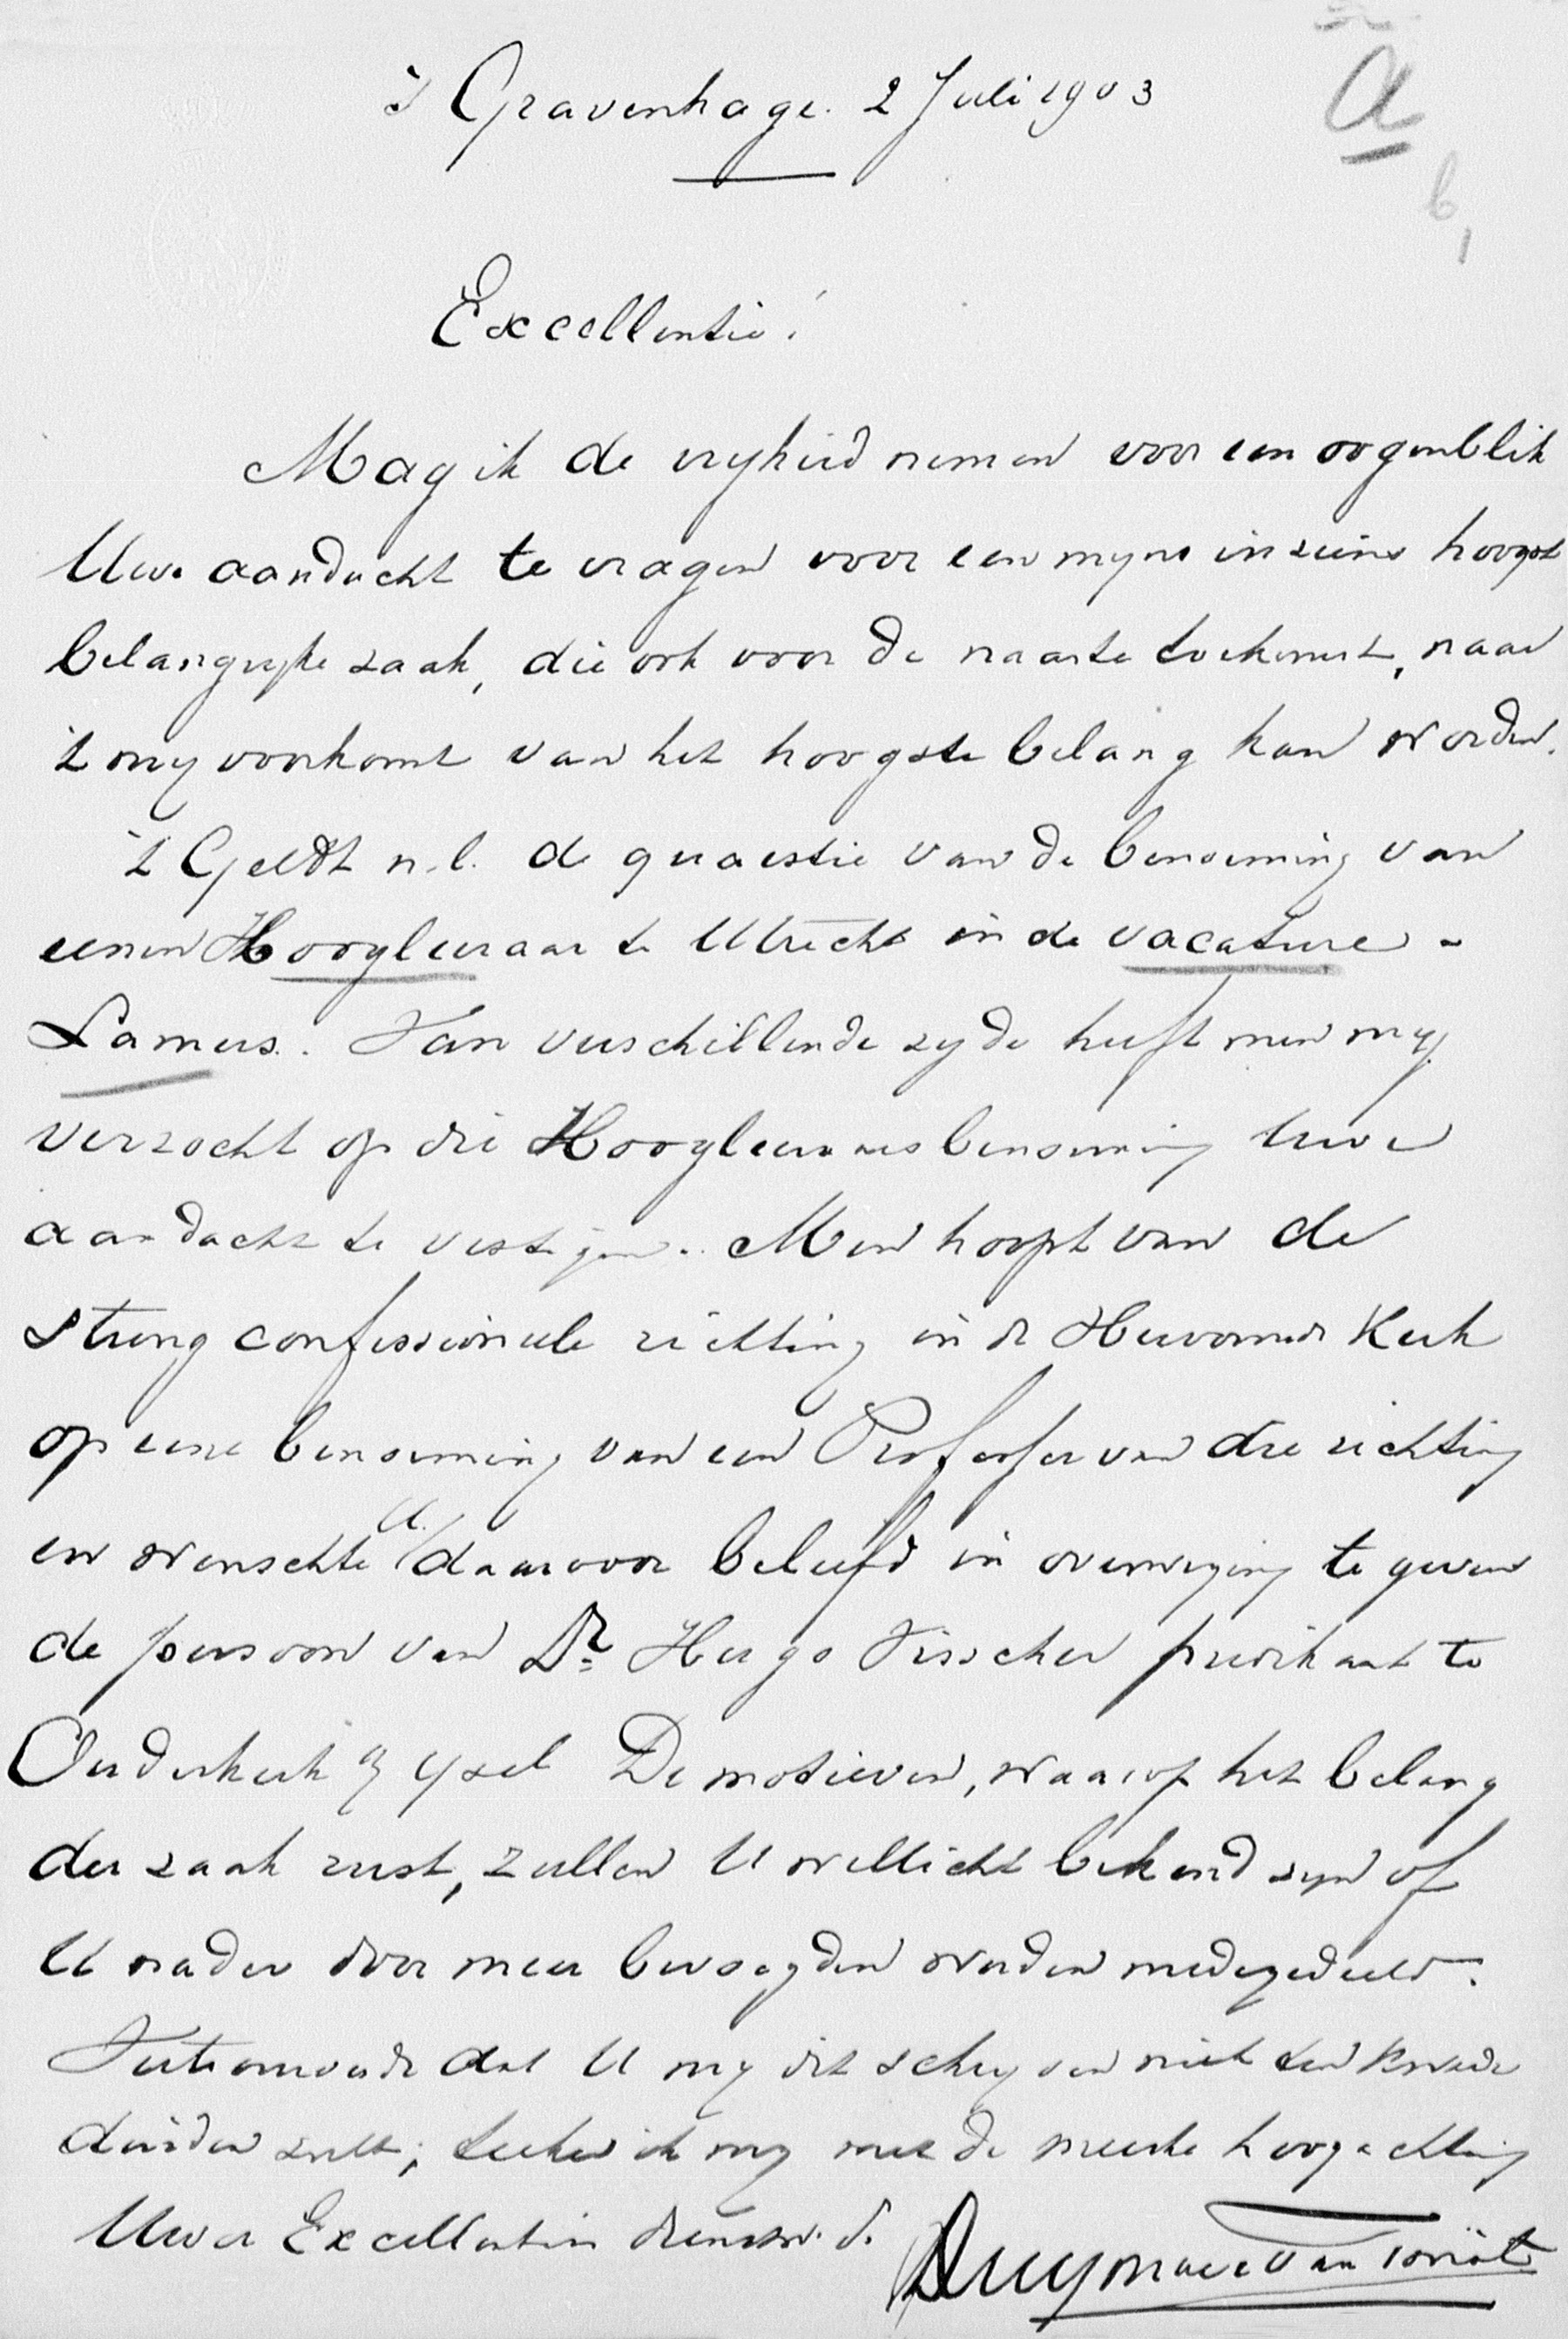 's Gravenhage. 2 Juli 1903
a
b
Excellentie!
Mag ik de vryheid nemen voor een oogenblik
Uwe aandacht te vragen voor een myns inziens hoogst
belangryke zaak, die ook voor de naaste toekomst, naar
't my voorkomt van het hoogste belang kan worden.
't Geldt n.l. de quaestie van de benoeming van
eenen Hoogleeraar te Utrecht in de vacature -
Lamers. Van verschillende zyde heeft men my
verzocht op die Hoogleeraarsbenoeming Uwe
aandacht te vestigen. Men hoopt van de
streng confessioneele richting in de Hervormde Kerk
op eene benoeming van een Professor van die richting
U.
en wenschte daarvoor beleefd in overweging te geven
de persoon van Dr Hugo Visscher predikant te
Ouderkerk a/ Ysel De motieven, waarop het belang
der zaak rust, zullen U wellicht bekend zyn of
U nader door meer bevoegden worden medegedeeld.
Vertrouwende dat U my dit schryven niet ten kwade
duiden zult; teeken ik my met de meeste hoogachting
Uwer Excellentie dienstw. d.
Duymaer van Twist